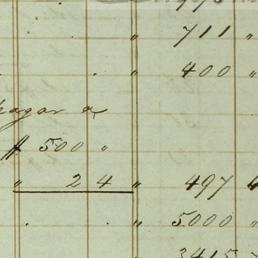 " 711 "
" 400 "
pagar a
# 500 "
" 24 " 497 4
" 5000 "
3415